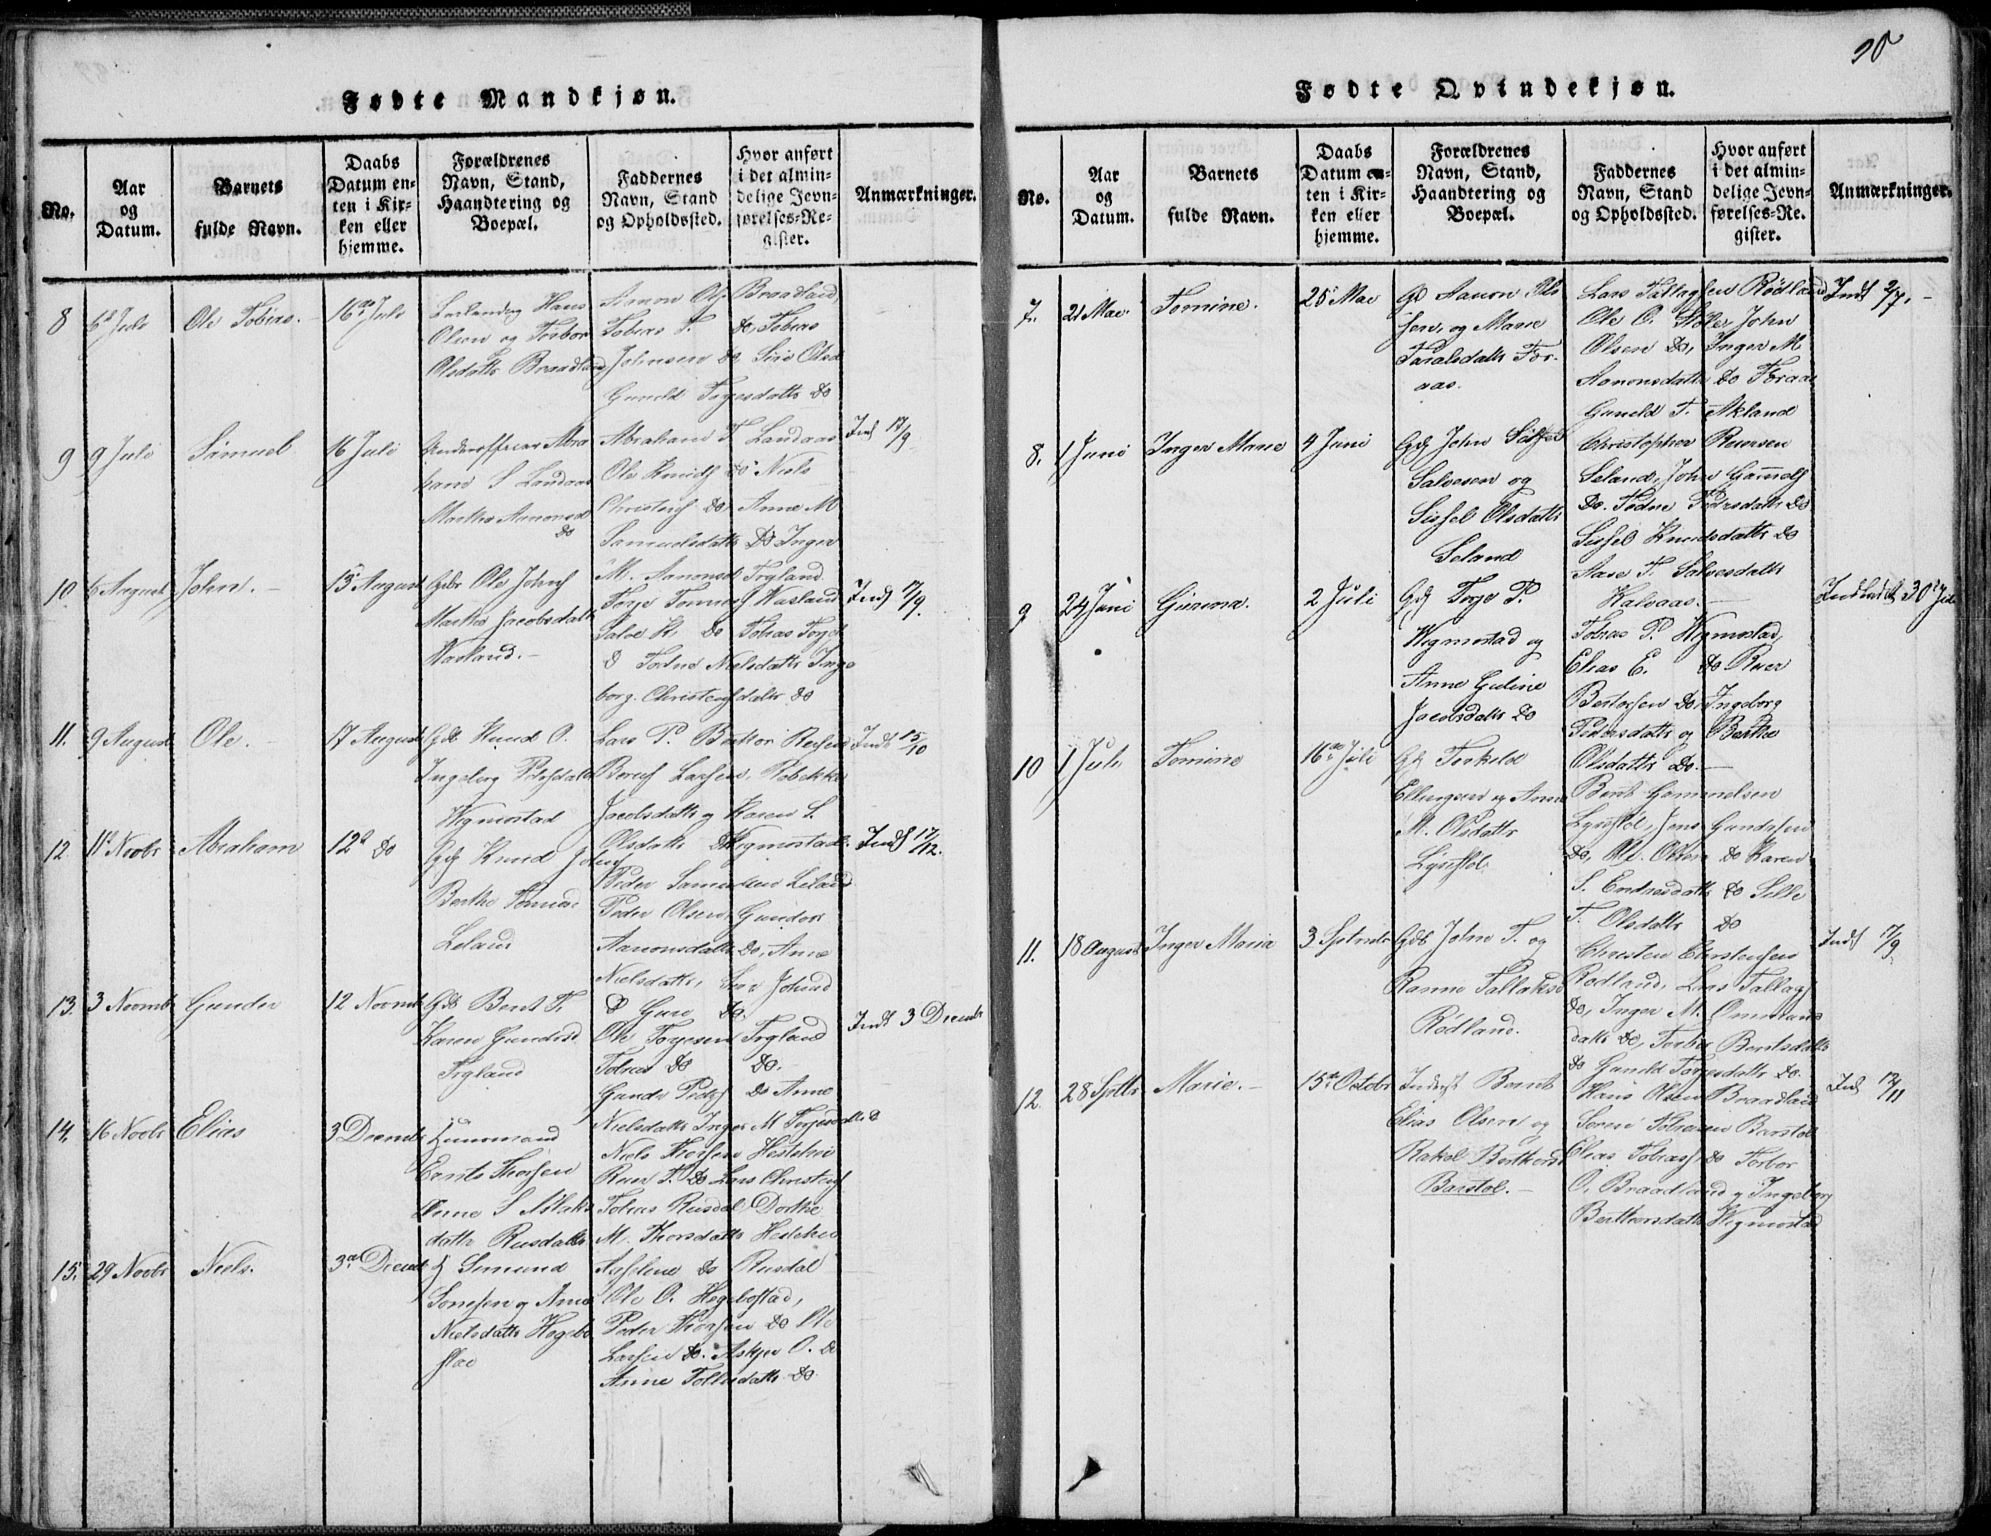 90
Fødte Mandkjøn.
No.
Aar
og
Datum.
Barnets
fulde Navn.
Daabs
Datum en-
ten i Kir-
ken eller
hjemme.
Forældrenes
Navn, Stand,
Haandtering og
Boepæl.
Faddernes
Navn, Stand
og Opholdssted.
Hvor anført
i det almin-
delige Jevn-
førelses-Re-
gister.
Anmærkninger.
8
6 Juli
Ole Tobias.
16 Juli
Hans
Olsen og Torbor
Olsdatter Braadland
Aanon Ols Braadland
Tobias T. do, Tobias
Johnsen do Siri Olsd
Gunild Torjesdatter do
9
9 Juli
Samuel
16 Juli
Underofficer Abra
ham S Landaas
Martha Aanonsd
do
Abraham T. Landaas
Ole Knuds do Niels
Christens do Anne M
Samuelsdatter do Inger
M. Aanonsd Fegland
Ind 17/9
10
6 August
John.
13 August
Ole Johns
Martha Jacobsdatter
Vasland.
Torje Tønnes Vasland
Salve K. do Tobias Torjes
d Todne Nielsdatter Inge
borg Christensdatter do
Ind 17/9.
11.
9 August
Ole.
17 August
Knud O.
Ingeborg
Wigmostad
Lars P.
Larsen, Rebekka
Jacobsdatter og Karen S.
Olsdatter Wigmostad.
Ind 15/10
12
11 Novbr
Abraham
12 do
Knud Johns
Berthe
Leland
Peder Samuelsen Leland
Peder Olsen, Gunder
Aanonsdatter do, Anne
Nielsdatter,
d Guro do.
Ind 17/12.
13.
3 Novmb
Gunder
12 Novmb
Bent T.
Karen Gundersd
Fegland
Ole Torjesen Fegland
Tobias do do.
Gunder Peders do Anne
Nielsdatter Inger M Torjesdatter d
Ind 3 Decmb
14.
16 Novbr
Elias
3 Decmb
Huusmand
Thorsen
Anne S Aslaks
datter Rusdal
Niels Thorsen
Ruer T. do Lars Christens
Tobias Rusdal Dorthe
M. Thorsdatter
do Rusdal
15.
29 Novbr
Niels.
3 Decmb
Simund
Sørensen og Anne
Nielsdatter Hegebo
stad
Ole O. Hegebostad,
Peder Thorsen do Ole
Larsen do. Askjer O. do
Anne Tollesdatter do
Fødte Qvindekjøn.
No.
Aar
og
Datum.
Barnets
fulde Navn.
Daabs
Datum en-
ten i Kir-
ken eller
hjemme.
Forældrenes
Navn, Stand,
Haandtering og
Boepæl.
Faddernes
Navn, Stand
og Opholdssted.
Hvor anført
i det almin-
delige Jevn-
førelses-Re-
gister.
Anmærkninger.
7.
21 Mai
Tomine.
25 Mai
Gd Aanon Ols
sen, og Marie
Taralsdatter For-
aas.
Lars Tallagsen Rødland
Ole O. Støle, John
Olsen do, Inger M
Aanonsdatter do Foraas
Gunild T. Akland
Ind 2/7.
8.
1 Juni
Inger Marie
4 Juni
John
Salvesen og
Sissel Olsdatter
Seland
Christopher Reiersen
Seland, John Gamels
do. Todne Pedersdatter do
Sissel Knudsdatter do
Aase T. Salvesdatter
Kalvaas.
9
24 Juni
Gurine.
2 Juli
Torje P.
Wigmostad og
Anne Guline
Jacobsdatter do
Tobias P. Wigmostad,
Elias E. do Ruer
Bertorsen do, Ingeborg
Pedersdatter og Berthe
Olsdatter do.
30 Juli
10
1 Juli
Tomine
16 Juli
Terkild
Ellingsen og Anne
M. Olsdatter
Lysestøl.
Bent Gamnelsen
Lysestøl, Jens Gundersen
do, Ole Olsen do Karen
S. Endresdatter do Sille
T. Olsdatter do
11.
18 August
Inger Maria
3 Sptmbr
John T. og
Ranne Tallaksd
Rødland.
Christen Christensen
Rødland, Lars Tallags
do, Inger M. Ommunds
datter do, Torbor Bentsdatter
do Gunild Torjesdatter do.
Ind 17/9
12.
28 Sptbr
Marie.
15 Octobr
Inderst Bernt
Elias Olsen og
Rakel Berthorsd
Barstøl.
Hans Olsen Braadland
Søren Tobiassen Barstøl
Elias Tobiass do Torbor
O. Braadland og Ingeborg
Berthorsdatter Wigmostad
Ind 12/11